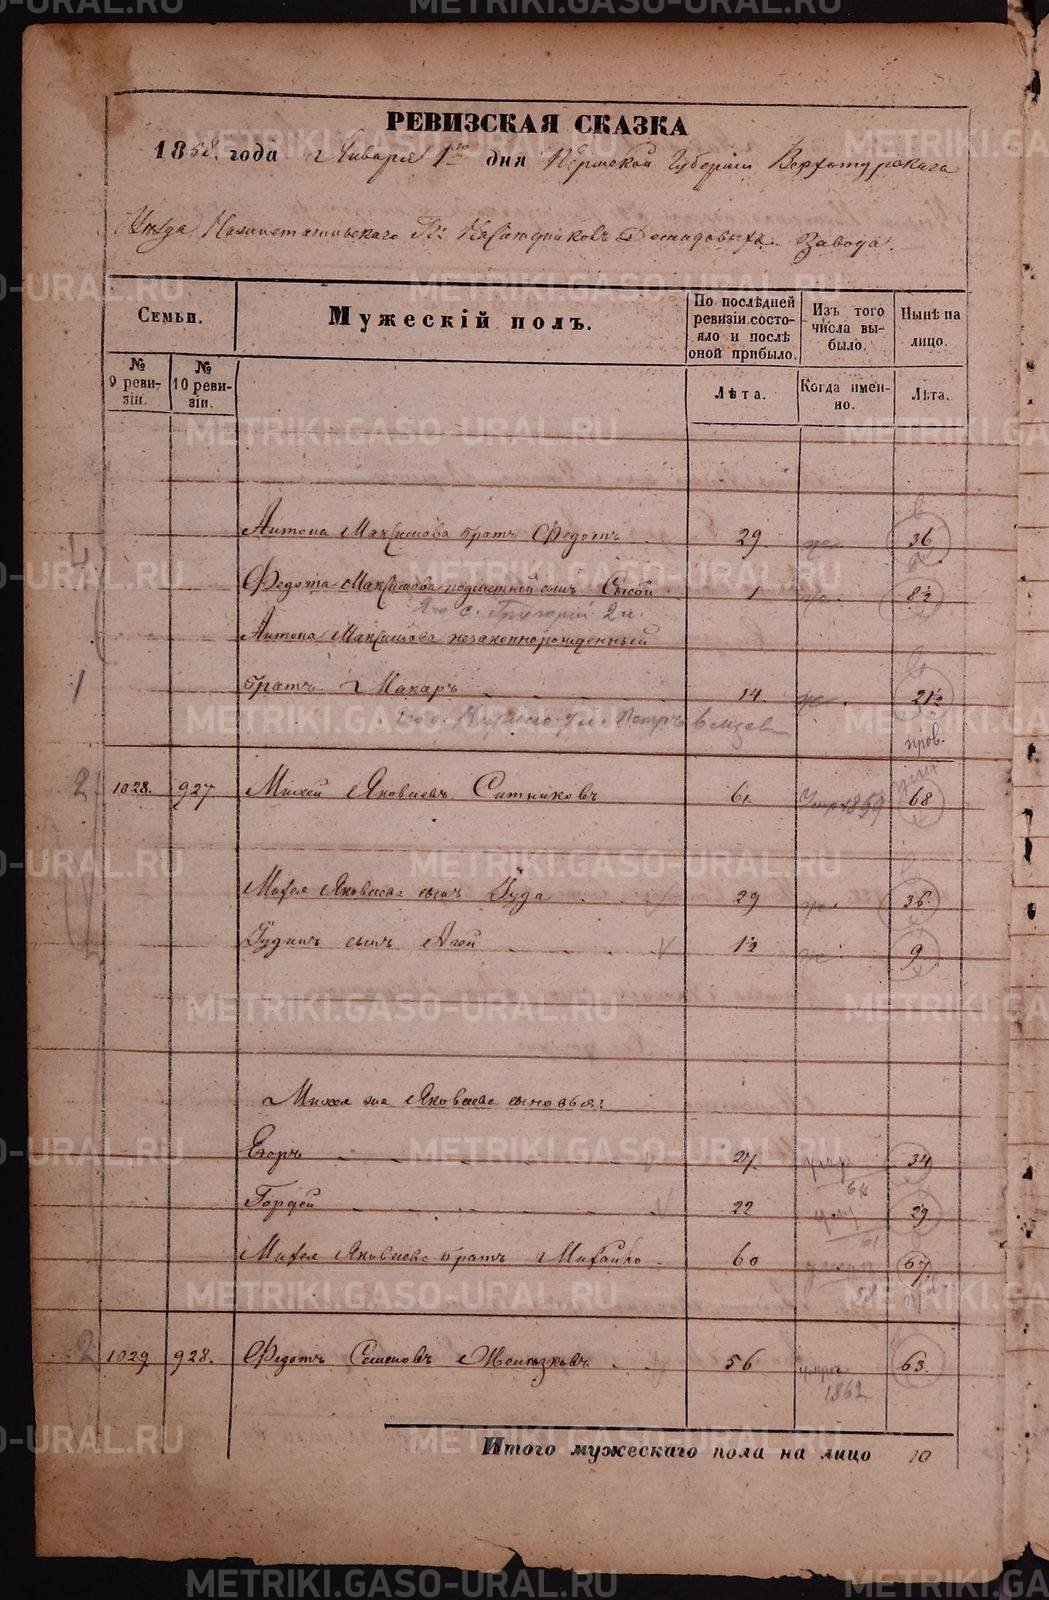 РЕВИЗСКАЯ СКАЗКА
1858. года Января 1го дня Пермской Губернiи Верхотурскаго
Уѣзда Нижнетагильскаго Гг. Наслѣдниковъ Демидовыхъ Завода.
Семьи.
Мужескiй полъ.
По послѣдней ревизiи состояло и послѣ оной прибыло.
Изъ того числа выбыло.
Нынѣ на лицо.
№ 9 ревизiи.
№ 10 ревизiи.
Лѣта.
Когда именно.
Лѣта.
Антона Максимова братъ Федотъ 29 36
Федота Максимова подметной сынъ Сысой 1 8½
Его с. Григорiй 2 л.
Антона Максимова незаконнорожденный
братъ Макаръ 14 21½
пров.
2 1028. 927. Михей Яковлевъ Ситниковъ 61. Умр 1859 68
Михея Яковлева сынъ Iуда 29 36
Iудинъ сынъ Агей 1½ 9
Михея же Яковлева сыновья:
Егоръ 27 умр 64 34
Гордей 22 ум 61 29
Михея Яковлева братъ Михайло 60 58 67
2 1029 928. Федотъ Семеновъ Желѣзковъ 56 умр 1862 63.
Итого мужескаго пола на лицо 10
METRIKI.GASO-URAL.RU